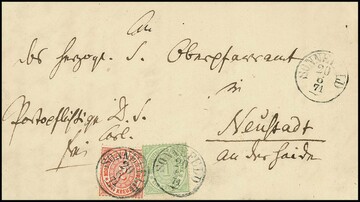 An
das herzogl. S. Oberpfarramt
in
Neustadt
an der Haide
Portopflichtige D. S.
frei
SONNEFELD
20
6
71
SONNEFELD
SONNEFELD